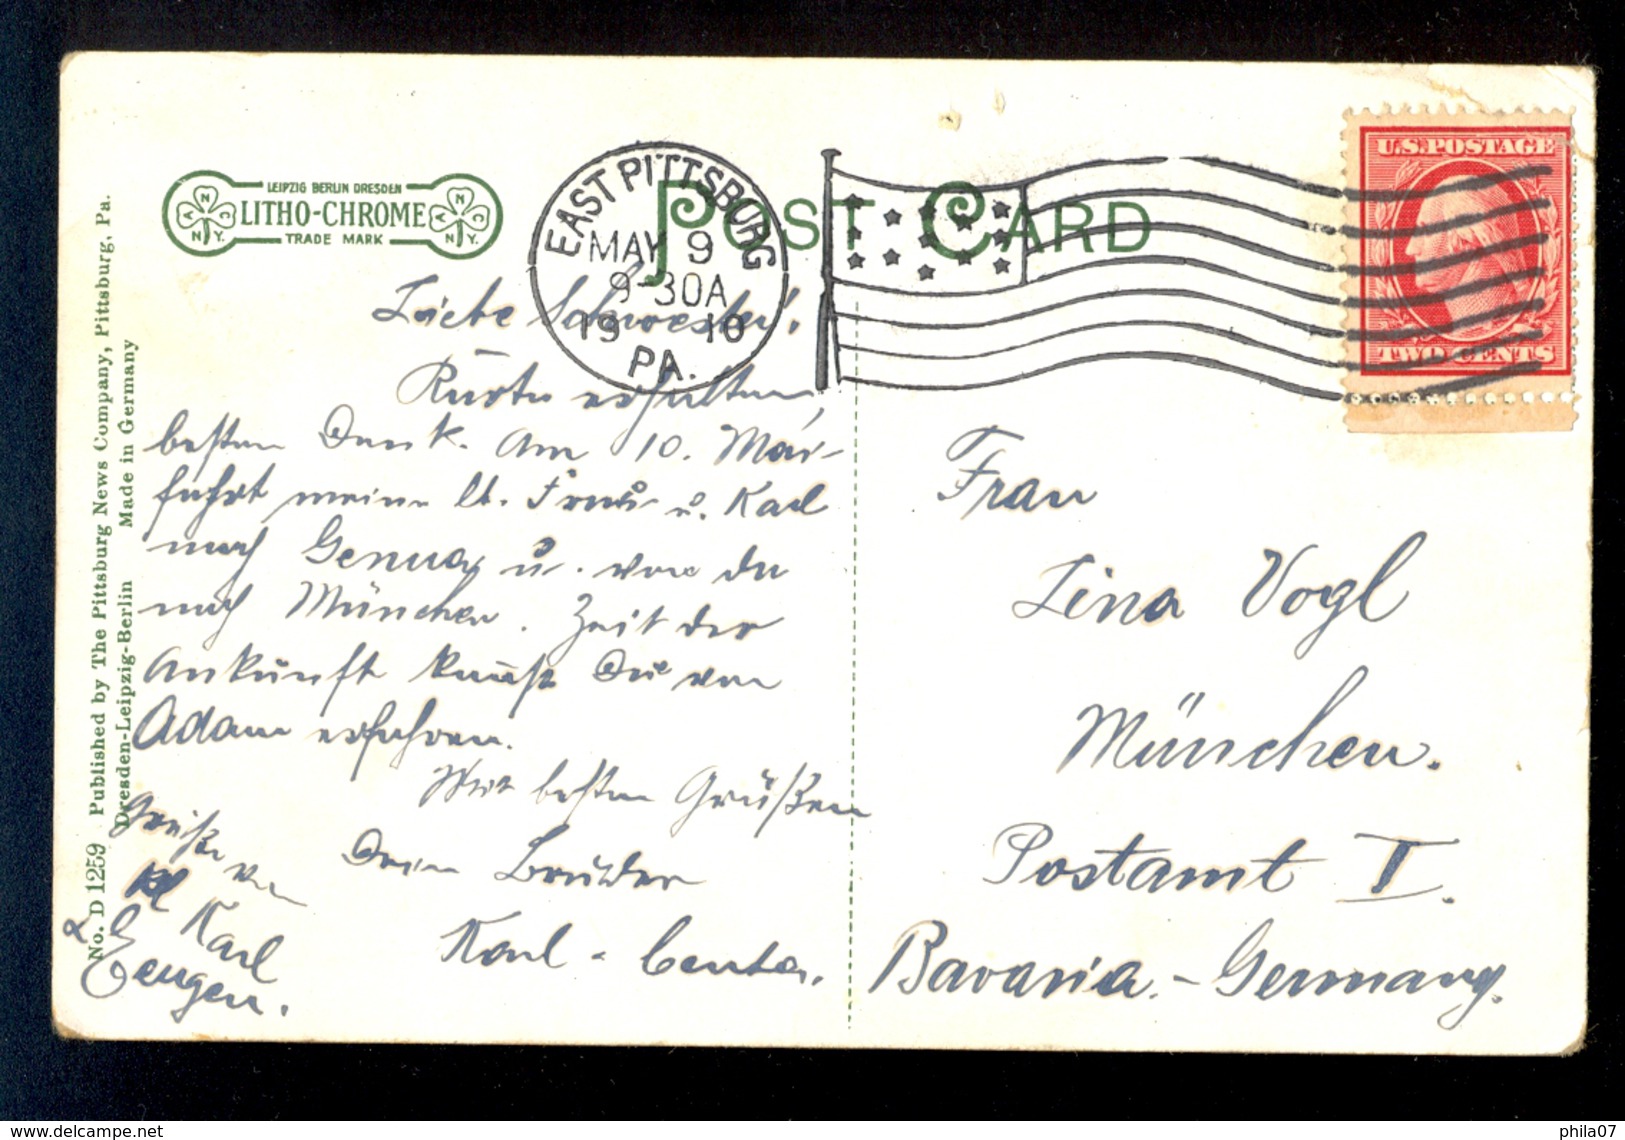 LEIPZIG BERLIN DRESDEN
LITHO-CHROME
TRADE MARK
ANC N.Y.
ANC N.Y.
POST CARD
EAST PITTSBURG
MAY 9
9-30A
1910
PA.
U.S. POSTAGE
TWO CENTS
No. D 1259 Published by The Pittsburg News Company, Pittsburg, Pa.
Dresden-Leipzig-Berlin Made in Germany
Liebe Schwester!
Karte erhalten,
besten Dank. Am 10. Mai
fährt meine lb. Frau u. Karl
nach Genua u. von da
nach München. Zeit der
Ankunft kannst Du von
Adam erfahren.
Mit besten Grüßen
Dein Bruder
Karl - Centa.
Grüße von
Karl
& Eugen.
Frau
Lina Vogl
München.
Postamt I.
Bavaria. - Germany.
delcampe.net
phila07